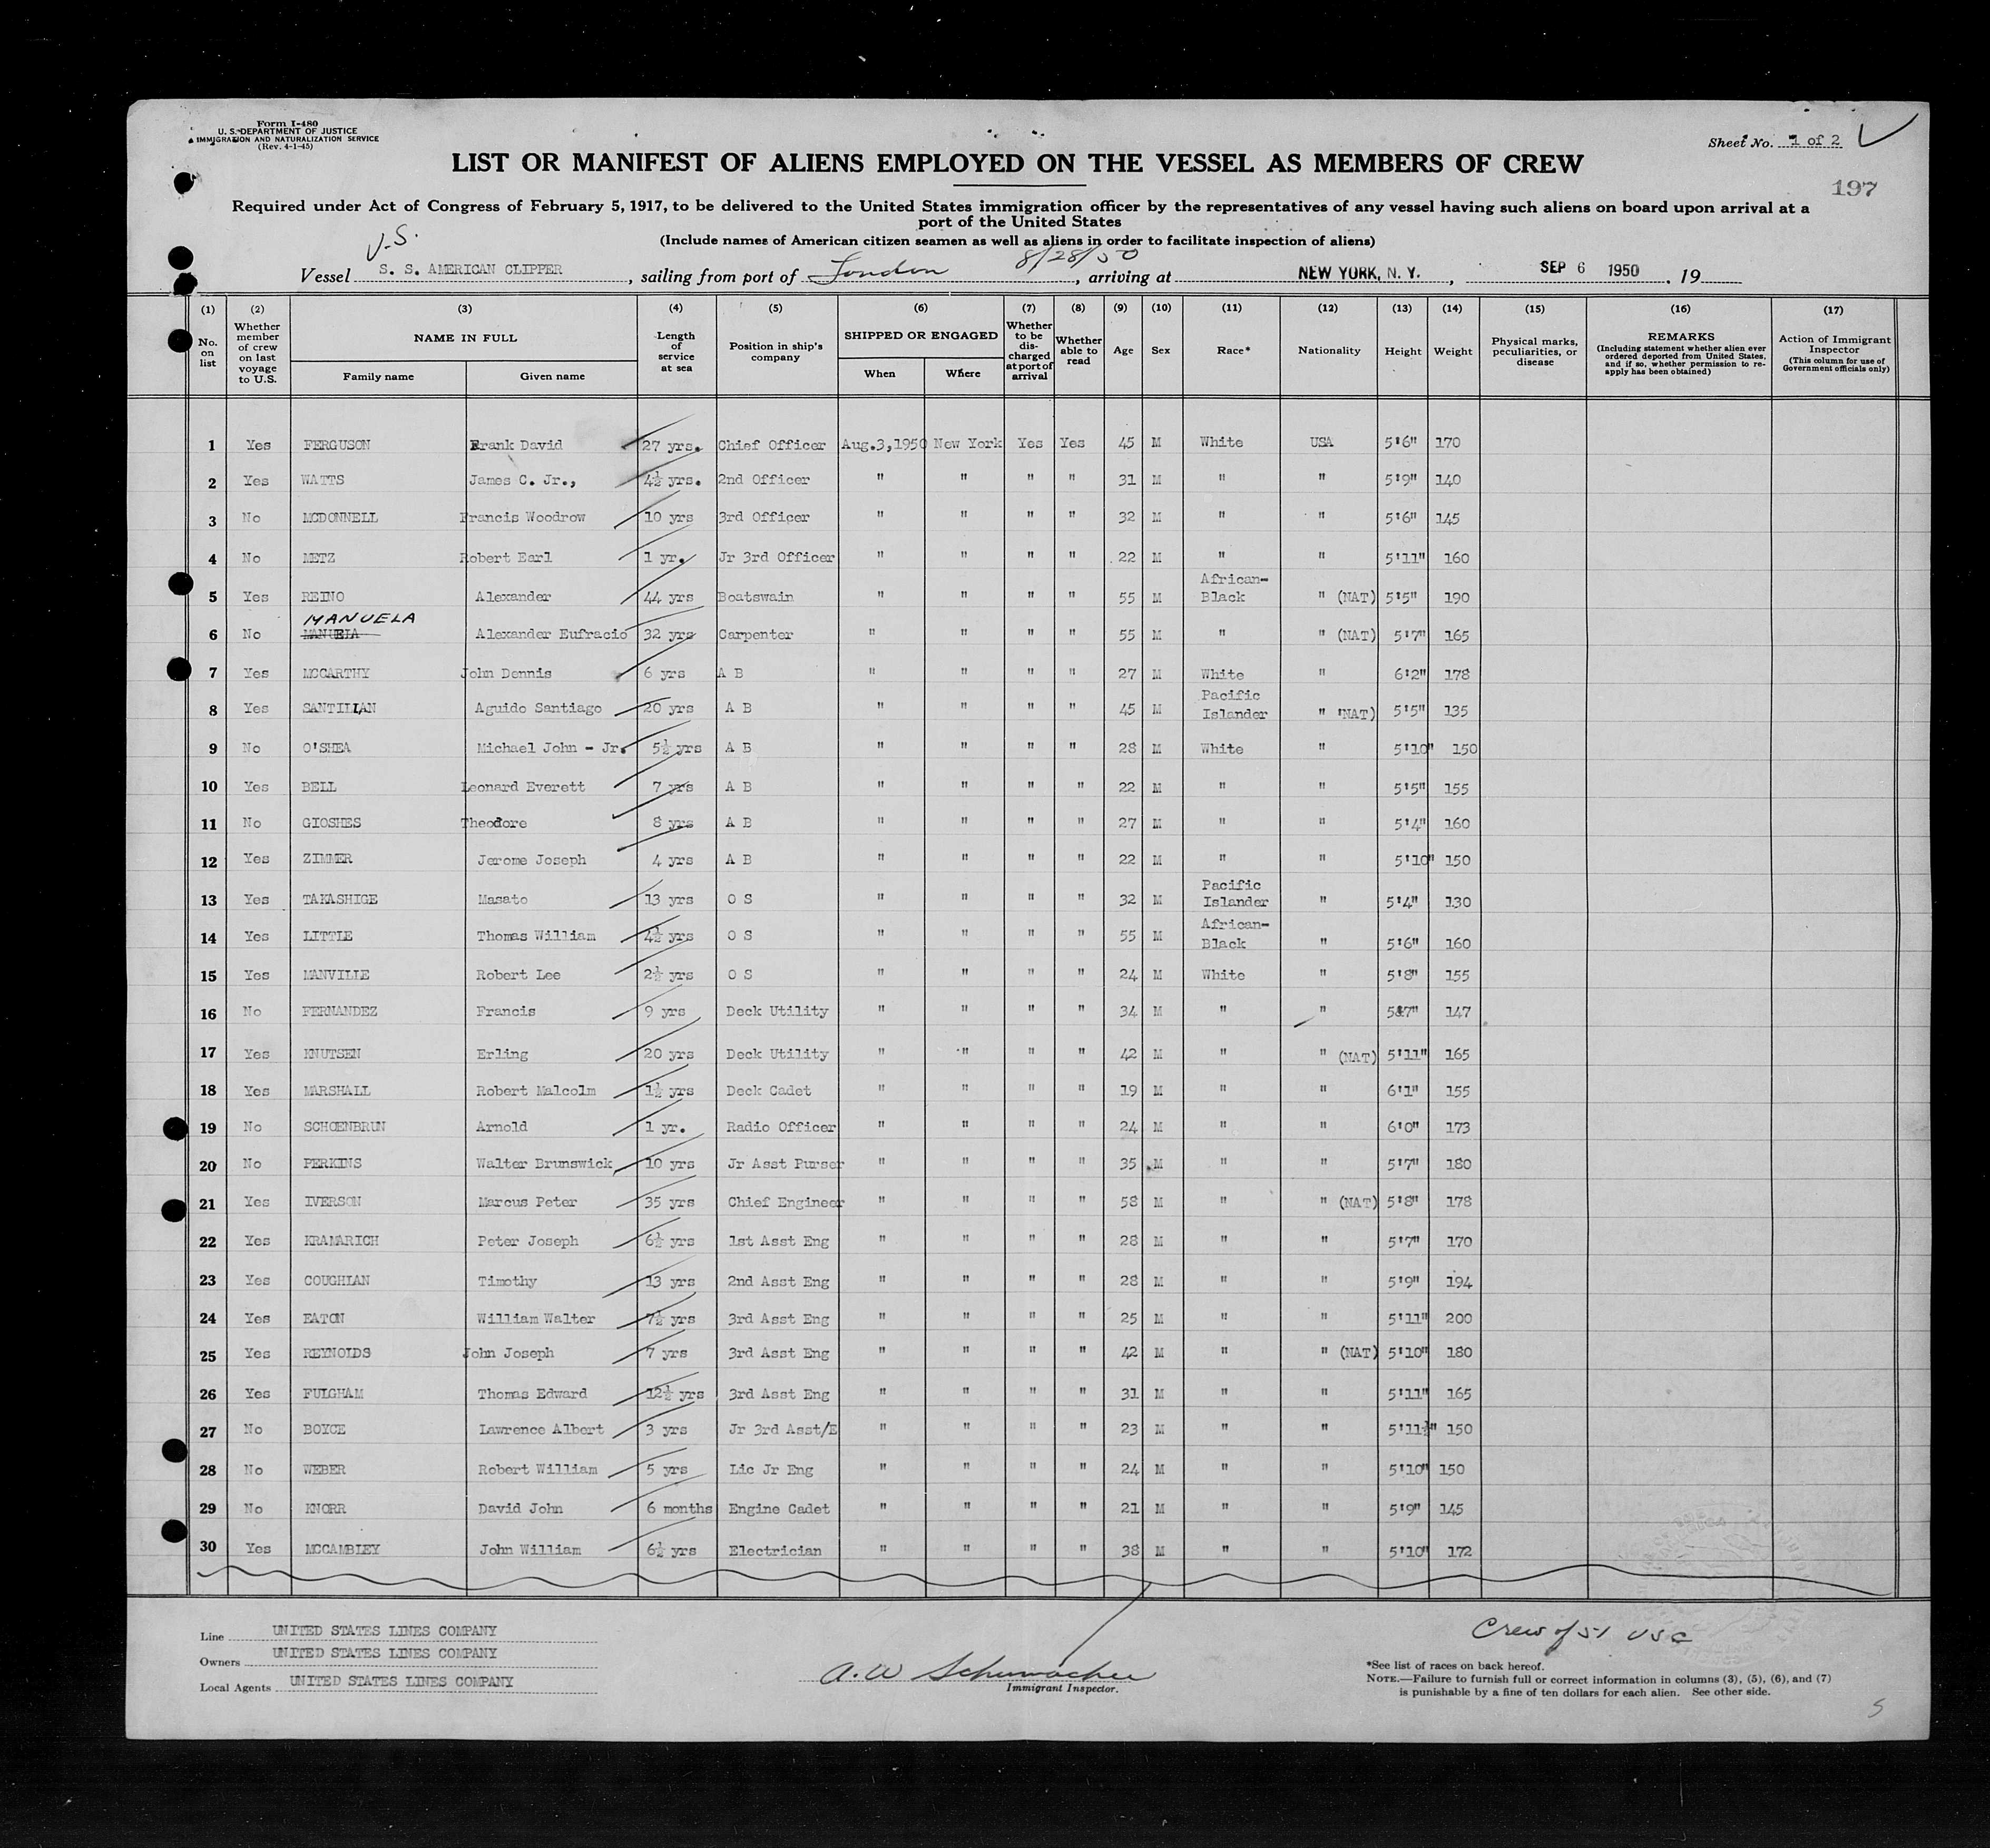 Form I-480
U. S. DEPARTMENT OF JUSTICE
IMMIGRATION AND NATURALIZATION SERVICE
(Rev. 4-1-45)
Sheet No. 1 of 2
197
LIST OR MANIFEST OF ALIENS EMPLOYED ON THE VESSEL AS MEMBERS OF CREW
Required under Act of Congress of February 5, 1917, to be delivered to the United States immigration officer by the representatives of any vessel having such aliens on board upon arrival at a
port of the United States
(Include names of American citizen seamen as well as aliens in order to facilitate inspection of aliens)
U.S.
Vessel S. S. AMERICAN CLIPPER, sailing from port of London 8/28/50, arriving at NEW YORK, N. Y., SEP 6 1950, 19
(1) No. on list
(2) Whether member of crew on last voyage to U.S.
(3) NAME IN FULL Family name Given name
(4) Length of service at sea
(5) Position in ship's company
(6) SHIPPED OR ENGAGED When Where
(7) Whether to be discharged at port of arrival
(8) Whether able to read
(9) Age
(10) Sex
(11) Race*
(12) Nationality
(13) Height
(14) Weight
(15) Physical marks, peculiarities, or disease
(16) REMARKS (Including statement whether alien ever ordered deported from United States, and if so, whether permission to re-apply has been obtained)
(17) Action of Immigrant Inspector (This column for use of Government officials only)
1 Yes FERGUSON Frank David 27 yrs. Chief Officer Aug.3,1950 New York Yes Yes 45 M White USA 5'6" 170
2 Yes WATTS James C. Jr., 4½ yrs. 2nd Officer " " " " 31 M " " 5'9" 140
3 No MCDONNELL Francis Woodrow 10 yrs 3rd Officer " " " " 32 M " " 5'6" 145
4 No METZ Robert Earl 1 yr. Jr 3rd Officer " " " " 22 M " " 5'11" 160
5 Yes REINO Alexander 44 yrs Boatswain " " " " 55 M African-Black " (NAT) 5'5" 190
MANUELA
6 No Alexander Eufracio 32 yrs Carpenter " " " " 55 M " " (NAT) 5'7" 165
7 Yes MCCARTHY John Dennis 6 yrs A B " " " " 27 M White " 6'2" 178
8 Yes SANTILLAN Aguido Santiago 20 yrs A B " " " " 45 M Pacific Islander " (NAT) 5'5" 135
9 No O'SHEA Michael John - Jr. 5½ yrs A B " " " " 28 M White " 5'10" 150
10 Yes BELL Leonard Everett 7 yrs A B " " " " 22 M " " 5'5" 155
11 No GIOSHES Theodore 8 yrs A B " " " " 27 M " " 5'4" 160
12 Yes ZIMMER Jerome Joseph 4 yrs A B " " " " 22 M " " 5'10" 150
13 Yes TAKASHIGE Masato 13 yrs O S " " " " 32 M Pacific Islander " 5'4" 130
14 Yes LITTLE Thomas William 4½ yrs O S " " " " 55 M African-Black " 5'6" 160
15 Yes MANVILLE Robert Lee 2½ yrs O S " " " " 24 M White " 5'8" 155
16 No FERNANDEZ Francis 9 yrs Deck Utility " " " " 34 M " " 5'7" 147
17 Yes KNUTSEN Erling 20 yrs Deck Utility " " " " 42 M " " (NAT) 5'11" 165
18 Yes MARSHALL Robert Malcolm 1½ yrs Deck Cadet " " " " 19 M " " 6'1" 155
19 No SCHOENBRUN Arnold 1 yr. Radio Officer " " " " 24 M " " 6'0" 173
20 No PERKINS Walter Brunswick 10 yrs Jr Asst Purser " " " " 35 M " " 5'7" 180
21 Yes IVERSON Marcus Peter 35 yrs Chief Engineer " " " " 58 M " " (NAT) 5'8" 178
22 Yes KRAMARICH Peter Joseph 6½ yrs 1st Asst Eng " " " " 28 M " " 5'7" 170
23 Yes COUGHLAN Timothy 13 yrs 2nd Asst Eng " " " " 28 M " " 5'9" 194
24 Yes EATON William Walter 7½ yrs 3rd Asst Eng " " " " 25 M " " 5'11" 200
25 Yes REYNOLDS John Joseph 7 yrs 3rd Asst Eng " " " " 42 M " " (NAT) 5'10" 180
26 Yes FULGHAM Thomas Edward 12½ yrs 3rd Asst Eng " " " " 31 M " " 5'11" 165
27 No BOYCE Lawrence Albert 3 yrs Jr 3rd Asst/E " " " " 23 M " " 5'11½" 150
28 No WEBER Robert William 5 yrs Lic Jr Eng " " " " 24 M " " 5'10" 150
29 No KNORR David John 6 months Engine Cadet " " " " 21 M " " 5'9" 145
30 Yes MCCAMBLEY John William 6½ yrs Electrician " " " " 38 M " " 5'10" 172
Line UNITED STATES LINES COMPANY
Owners UNITED STATES LINES COMPANY
Local Agents UNITED STATES LINES COMPANY
A. W Schumacher
Immigrant Inspector.
Crew of 51 USC
*See list of races on back hereof.
NOTE.—Failure to furnish full or correct information in columns (3), (5), (6), and (7)
is punishable by a fine of ten dollars for each alien. See other side.
5